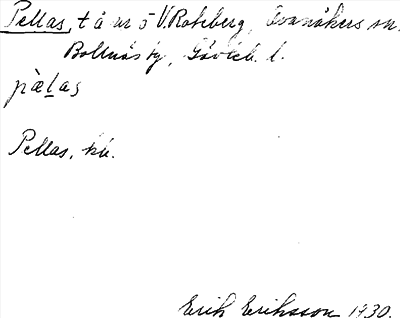 Pellas, t å nr 5 V. Roteberg, Ovanåkers sn.
Bollnäs kg, Gävleb. l.
pèḷas
Pellas, hli.
Erik Eriksson 1930.